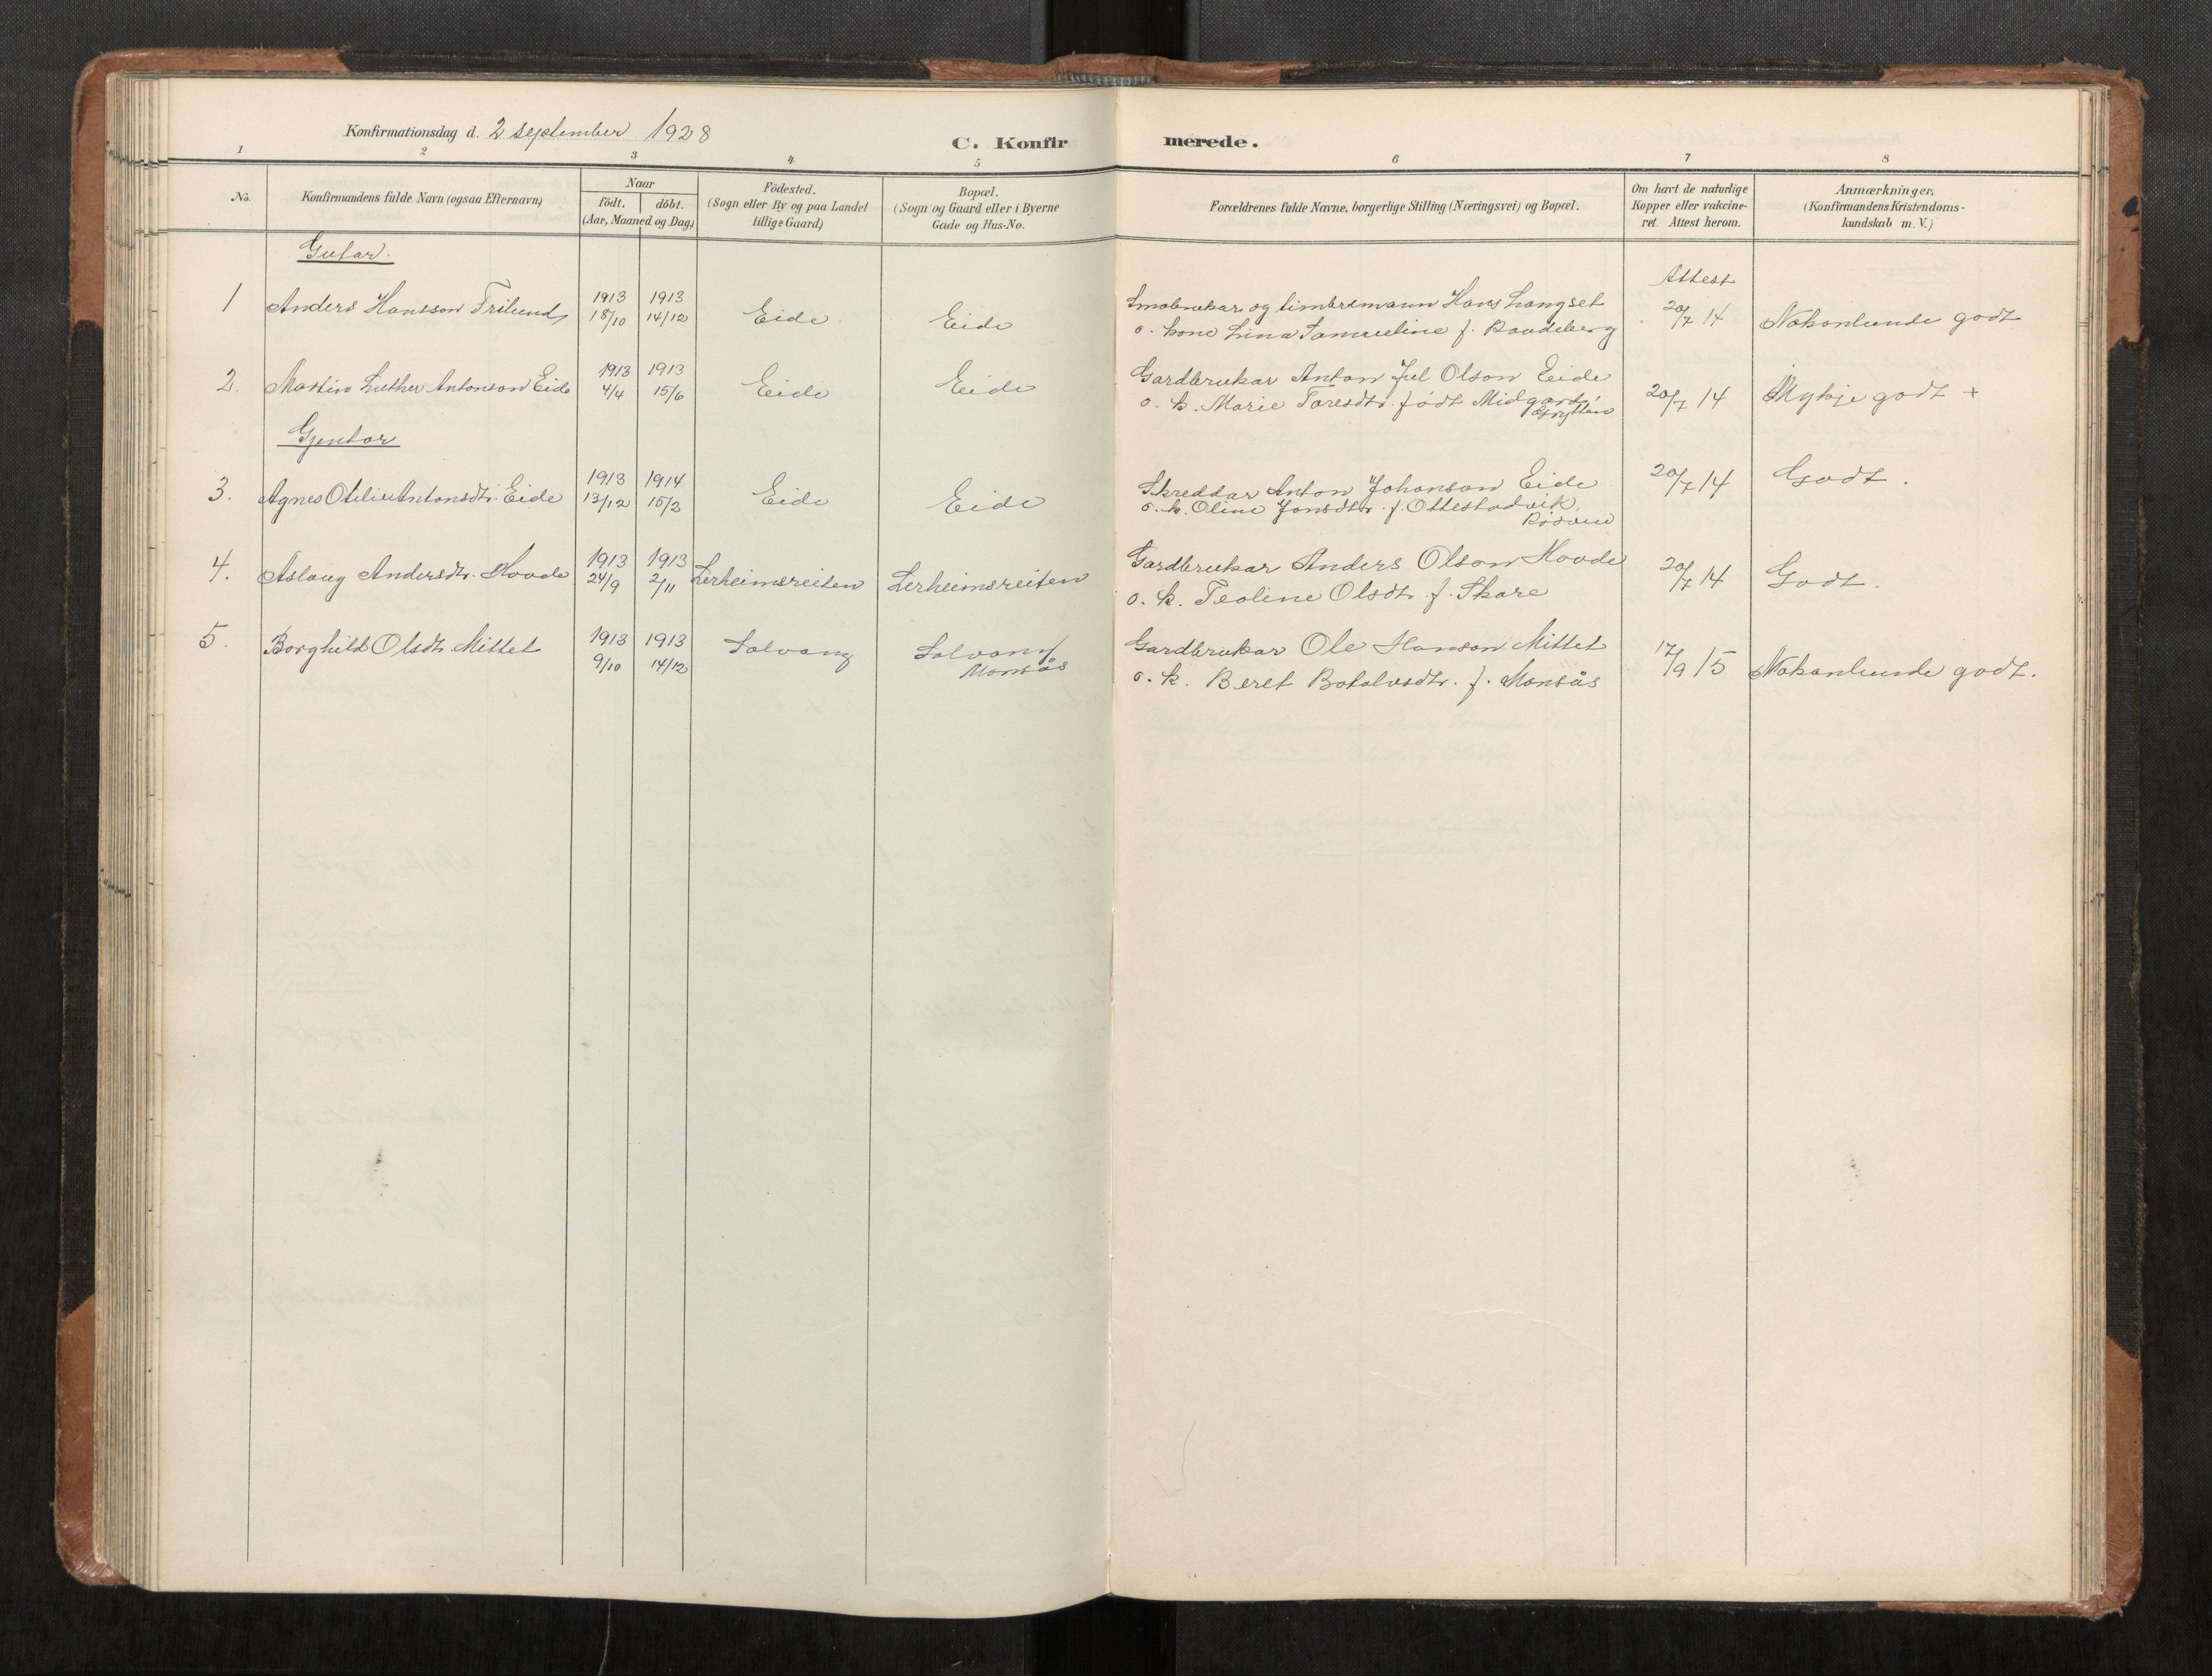 Konfirmationsdag d. 2 september 1928
C. Konfirmerede.
1 2 3 4 5 6 7 8
No. Konfirmandens fulde Navn (ogsaa Efternavn) Naar födt. döbt. (Aar, Maaned og Dag) Födested. (Sogn eller By og paa Landet tillige Gaard) Bopæl. (Sogn og Gaard eller i Byerne Gade og Hus-No. Forældrenes fulde Navne, borgerlige Stilling (Næringsvei) og Bopæl. Om havt de naturlige Kopper eller vakcineret. Attest herom. Anmærkninger, (Konfirmandens Kristendomskundskab m. V.)
Gutar.
Attest
1 Anders Hansson Frilund 1913 18/10 1913 14/12 Eide Eide Smabrukar og timbremann Hans Langset
o. kone Lina Samueline f. Raudeberg 20/7 14 Nokonlunde godt
2. Martin Luther Antonson Eide 1913 4/4 1913 15/6 Eide Eide Gardbrukar Anton Jul Olson Eide
o. k. Marie Taresdtr. födt Midgard, Grytten 20/7 14 Mykje godt +
Gjentor
3. Agnes Otilie Antonsdtr. Eide 1913 13/12 1914 15/2 Eide Eide Skreddar Anton Johanson Eide
o. k. Oline Jonsdtr. f. Ottestadvik, Rödven 20/7 14 Godt.
4. Aslaug Andersdtr. Hovde 1913 24/9 1913 2/11 Lerheimsreiten Lerheimsreiten Gardbrukar Anders Olson Hovde
o. k. Teoline Olsdtr. f. Skare 20/7 14 Godt.
5. Borghild Olsdtr. Mittet 1913 9/10 1913 14/12 Solvang Solvang Monsås Gardbrukar Ole Hanson Mittet
o. k. Beret Botolvsdtr. f. Monsås 17/9 15 Nokonlunde godt.